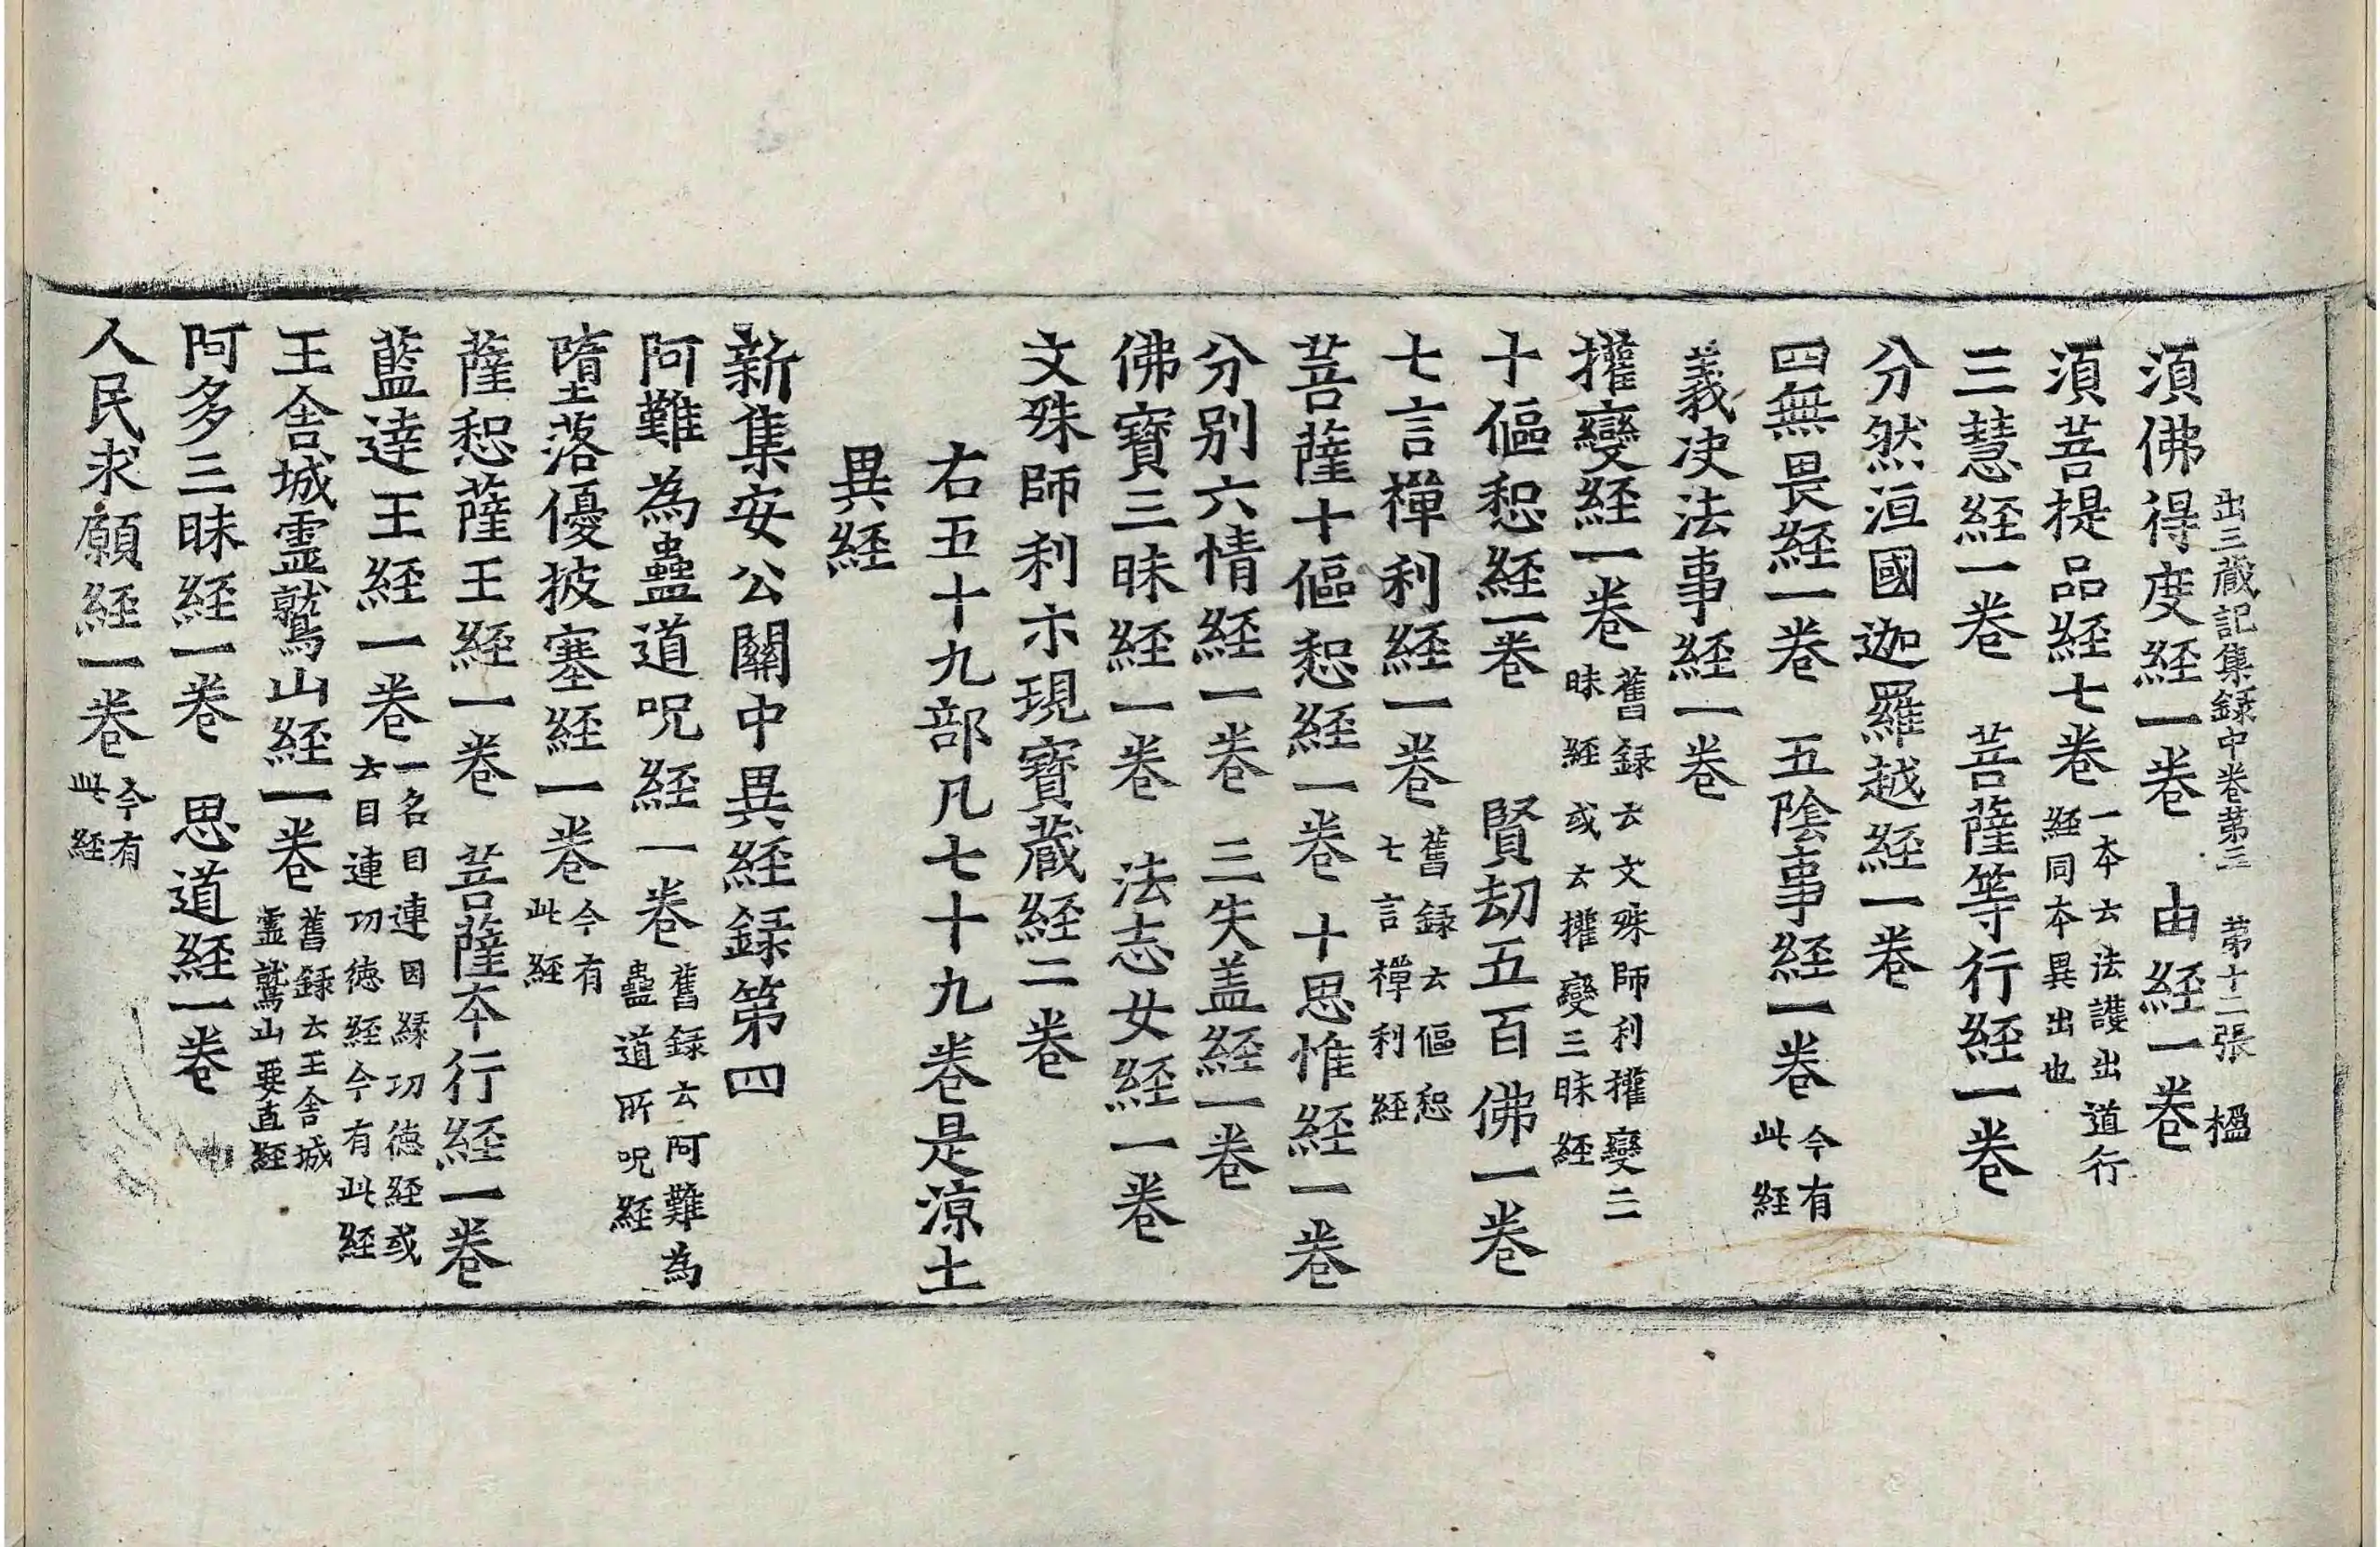 出三藏記集録中卷苐三　苐十二張　楹
湏佛得度経一卷　由経一卷
湏菩提品経七卷 一本云法護出道行経同本異出也
三慧経一卷　菩薩等行経一卷
分然洹國迦羅越経一卷
四無畏経一卷　五陰事経一卷 今有此経
義决法事経一卷
㩲變経一卷 舊録云文殊師利㩲變三昧経或云㩲變三昧経
十傴惒経一卷　賢劫五百佛一卷
七言禪利経一卷 舊録云傴惒七言禪利経
菩薩十傴惒経一卷　十思惟経一卷
分别六情経一卷　三失盖経一卷
佛寶三昧経一卷　法志女経一卷
文殊師利示現寶藏経二卷
右五十九部凡七十九卷是涼土
異経
新集安公關中異経録第四
阿難為蠱道呪経一卷 舊録云阿難為蠱道所呪経
墮落優披塞経一卷 今有此経
薩惒薩王経一卷　菩薩本行経一卷
藍達王経一卷 一名目連因縁功徳経或云目連功徳経今有此経
王舍城靈鷲山経一卷 舊録云王舍城靈鷲山要直経
阿多三昧経一卷　思道経一卷
人民求願経一卷 今有此経